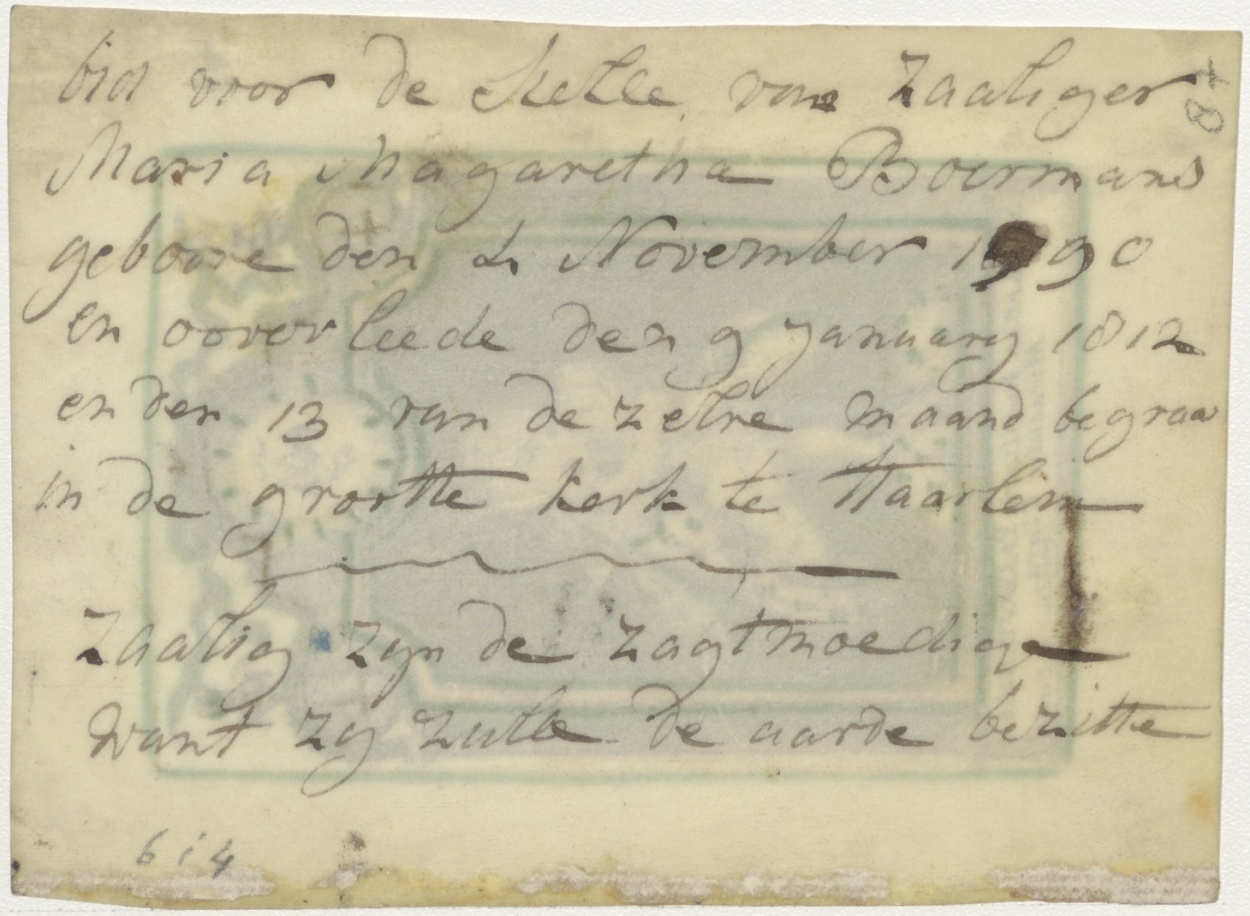 bid voor de Zielle van Zaaliger
Maria Magaretha Boermans
geboore den 4 November 1790
en ooverleede den 9 January 1812
en den 13 van de zelve maand begraa
in de grootte kerk te Haarlem
Zaalig zyn de zagtmoedige
want zy zulle de aarde bezitte
614